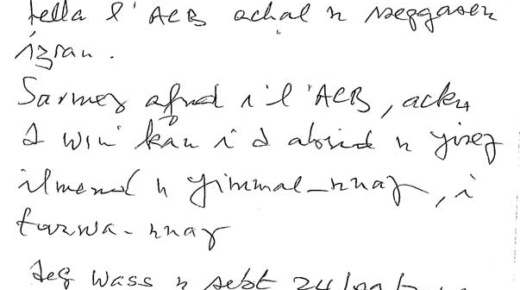 tella l'ACB achal n iseggasen
izran.
Sarmeɣ afud i l'ACB, acku
d win kan i d abrid n yiseɣ
ilmend n yimmal-nnaɣ, i
tarwa-nnaɣ
deg wass n sebt 24